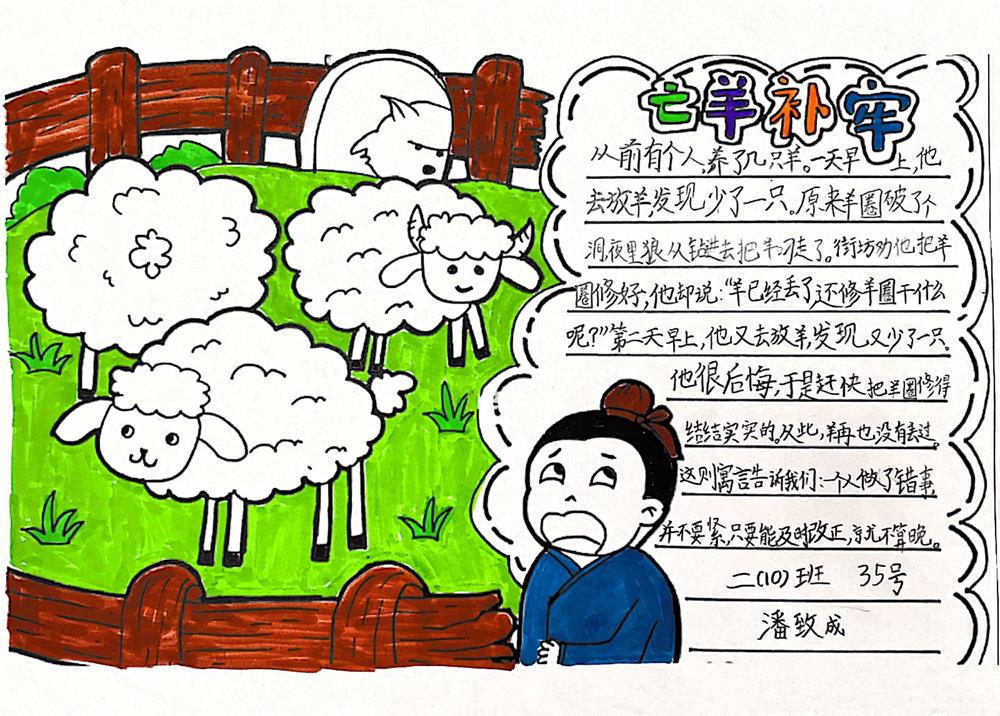 亡羊补牢
从前有个人,养了几只羊。一天早上,他
去放羊,发现少了一只。原来羊圈破了个
洞,夜里狼从钻进去把羊叼走了。街坊劝他把羊
圈修好,他却说:“羊已经丢了,还修羊圈干什么
呢?”第二天早上,他又去放羊,发现又少了一只。
他很后悔,于是赶快把羊圈修得
结结实实的。从此,羊再也没有丢过。
这则寓言告诉我们:一个人做了错事,
并不要紧,只要能及时改正,就不算晚。
二(10)班 35号
潘致成